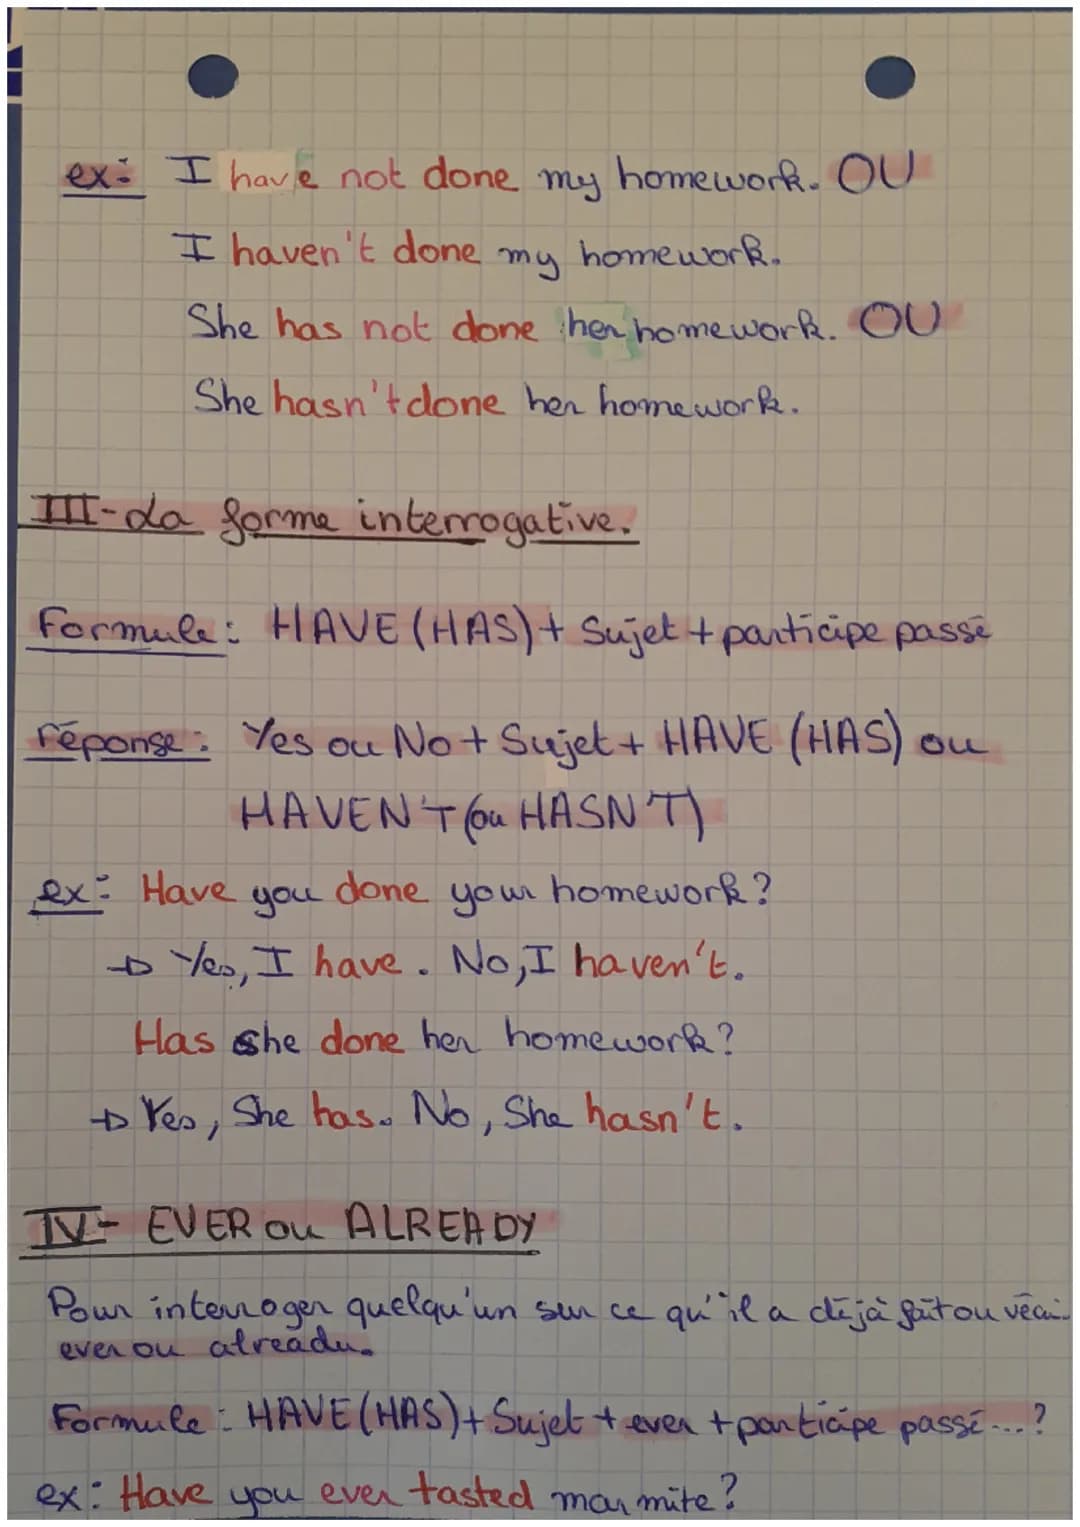 ex: I have not done my homework. OU
I haven't done my homework.
She has not done her homework. OU
She hasn't done her homework.
III- La forme interrogative.
Formule: HAVE (HAS) + Sujet + participe passé
réponse: Yes ou No + Sujet + HAVE (HAS) ou
HAVEN'T (ou HASN'T)
ex: Have you done your homework?
→ Yes, I have. No, I haven't.
Has she done her homework?
→ Yes, She has. No, She hasn't.
IV- EVER ou ALREADY
Pour interroger quelqu'un sur ce qu'il a déjà fait ou vécu
ever ou already.
Formule: HAVE (HAS) + Sujet + ever + participe passé...?
ex: Have you ever tasted marmite?